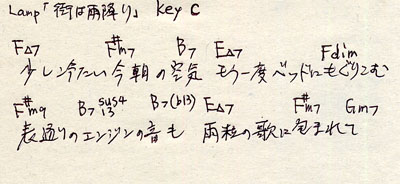 Lamp「街は雨降り」 key C
F△7 F#m7 B7 E△7 Fdim
少し冷たい今朝の空気 もう一度ベッドにもぐりこむ
F#m9 B7sus4 13 B7(b13) E△7 F#m7 Gm7
表通りのエンジンの音も 雨粒の歌に包まれて